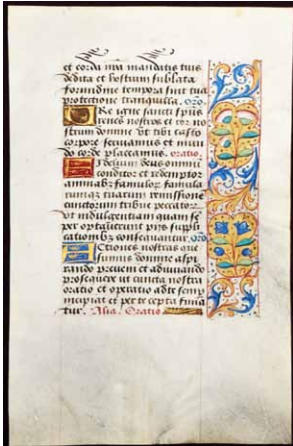 et corda nra mandatis tuis
dedita et hostium sublata
formidine tempora sint tua
protectione tranquilla. oro.
Vre igne sancti spūs
renes nostros et cor no
strum domine vt tibi casto
corpore seruiamus et mun
do corde placeamus. oratio.
Fidelium deus omniū
conditor et redemptor
animabꝫ famuloꝝ famula
rumqꝫ tuarum remissionē
cunctorum tribue peccatoꝝ
vt indulgentiam quam sē
per optauerunt pijs suppli
cationibꝫ consequantur. oro
Actiones nostras que
sumus domine aspi
rando preueni et adiuuando
prosequere vt cuncta nostra
oratio et operatio a te semp
incipiat et per te cepta finia
tur. Alia. Oratio